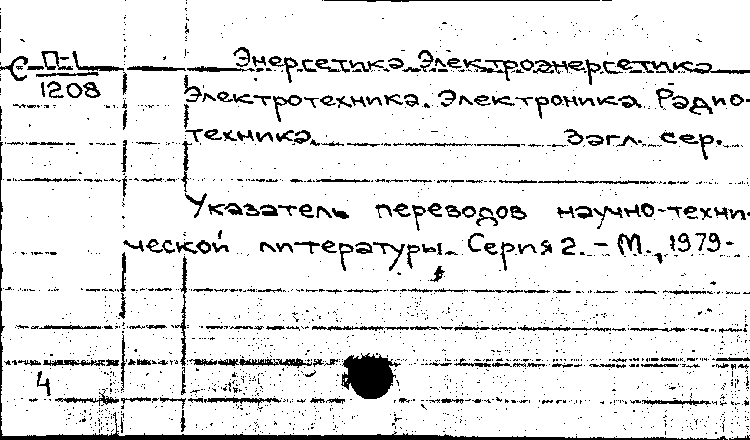 С П-1 Энергетика. Электроэнергетика
1208 Электротехника. Электроника. Радио-
техника. Загл. сер.
Указатель переводов научно-техни-
ческой литературы. Серия 2. - М., 1979-
4